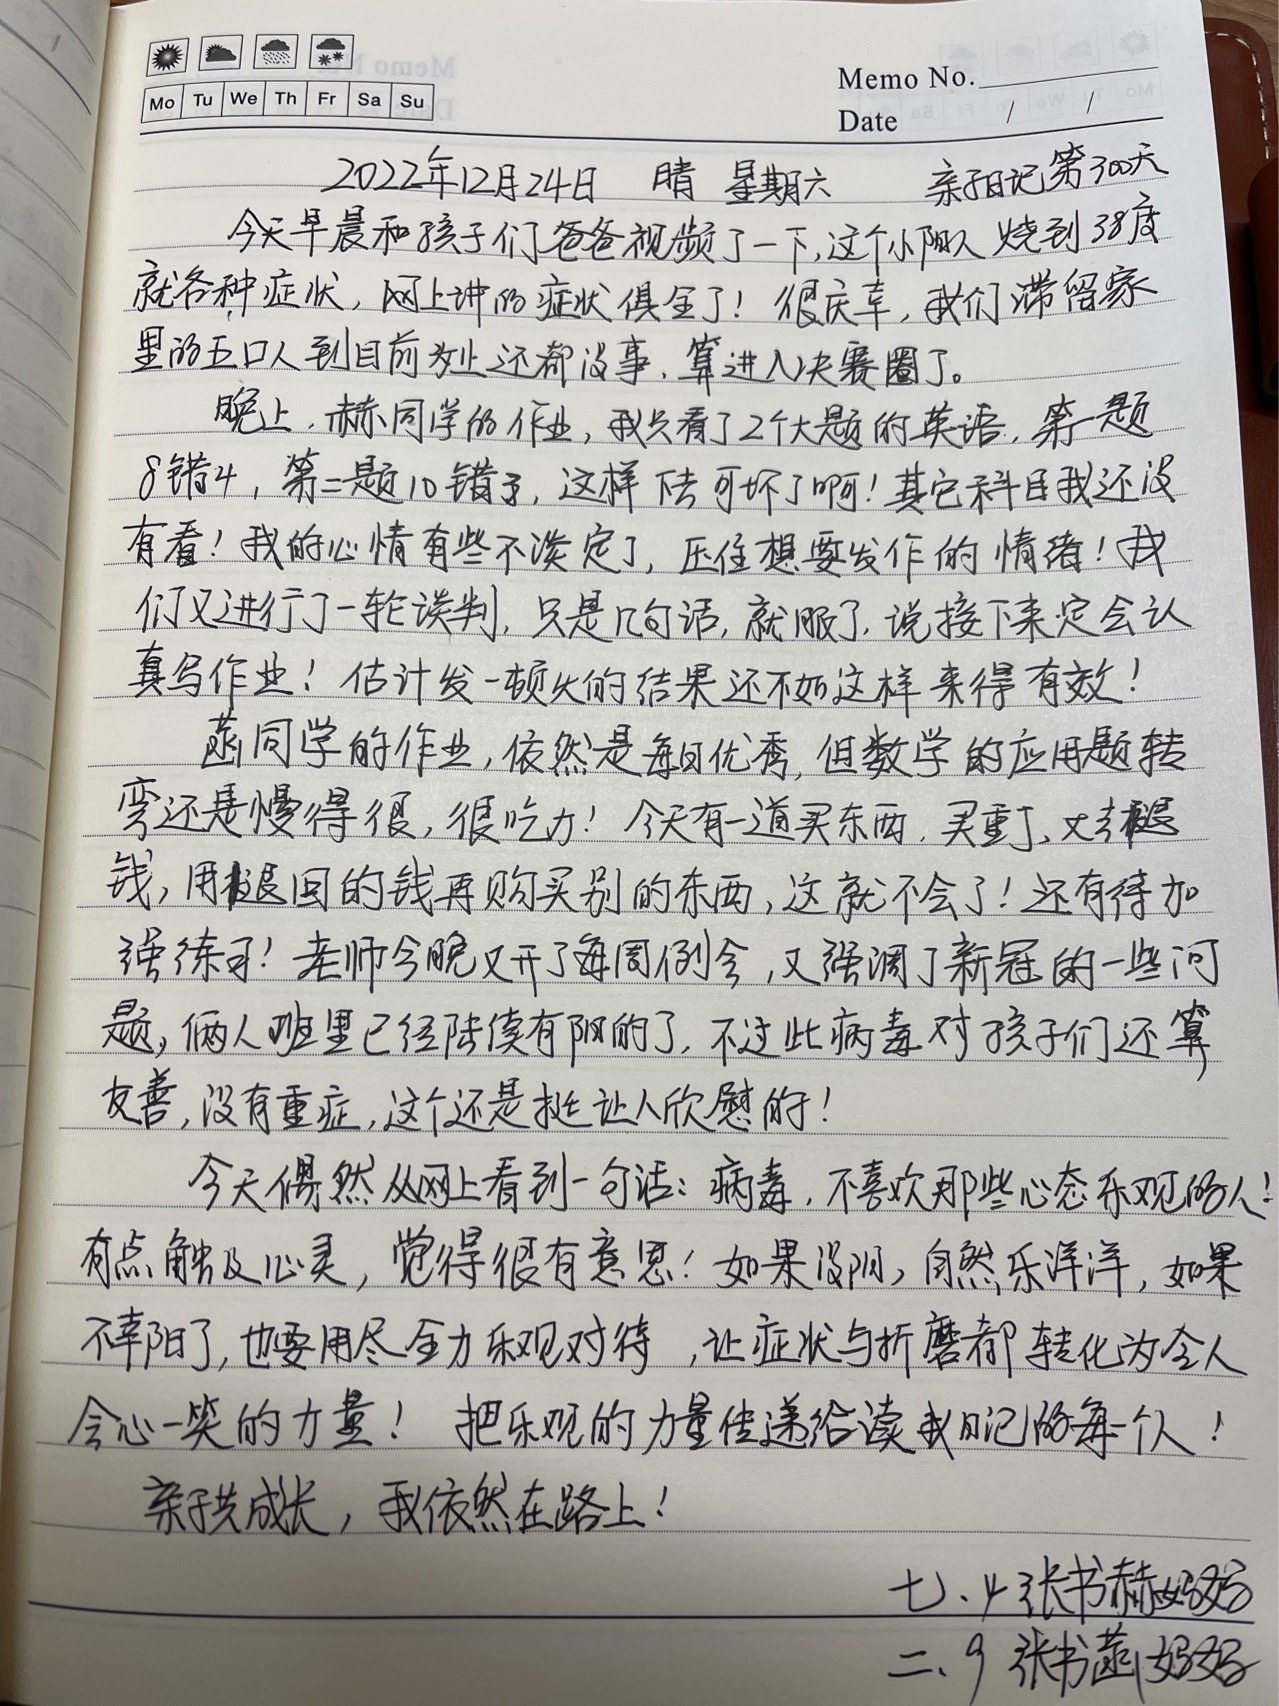 Mo Tu We Th Fr Sa Su
Memo No.
Date / /
2022年12月24日 晴 星期六 亲子日记第300天
今天早晨和孩子们爸爸视频了一下,这个小阳人烧到38度
就各种症状,网上讲的症状俱全了!很庆幸,我们滞留家
里的五口人到目前为止还都没事,算进入决赛圈了。
晚上,赫同学的作业,我只看了2个大题的英语,第一题
8错4,第二题10错3,这样下去可坏了啊!其它科目我还没
有看!我的心情有些不淡定了,压住想要发作的情绪!我
们又进行了一轮谈判,只是几句话,就服了,说接下来定会认
真写作业!估计发一顿火的结果还不如这样来得有效!
菡同学的作业,依然是每日优秀,但数学的应用题转
弯还是慢得很,很吃力!今天有一道买东西,买重了、又去退
钱,用退回的钱再购买别的东西,这就不会了!还有待加
强练习!老师今晚又开了每周例会,又强调了新冠的一些问
题,俩人班里已经陆续有阳的了,不过此病毒对孩子们还算
友善,没有重症,这个还是挺让人欣慰的!
今天偶然从网上看到一句话:病毒,不喜欢那些心态乐观的人!
有点触及心灵,觉得很有意思!如果没阴,自然乐洋洋,如果
不幸阳了,也要用尽全力乐观对待,让症状与折磨都转化为令人
会心一笑的力量!把乐观的力量传递给读我日记的每一个人!
亲子共成长,我依然在路上!
七、4张书赫妈妈
二、9张书菡妈妈